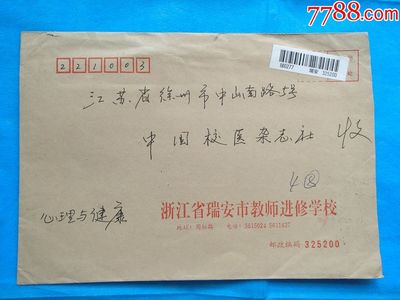 7788.com
221003
660277 瑞安 325200
江苏省徐州市中山南路5号
中国校医杂志社 收
心理与健康
浙江省瑞安市教师进修学校
电话: 5615024 5611637
邮政编码 325200